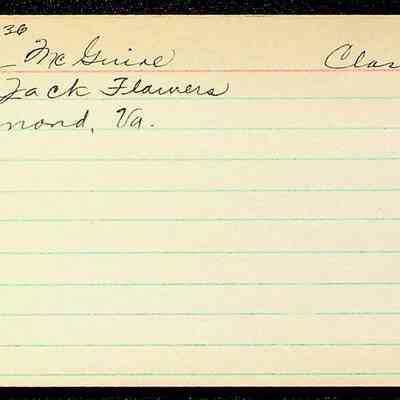 36
- McGuire Clas
Jack Flowers
mond, Va.